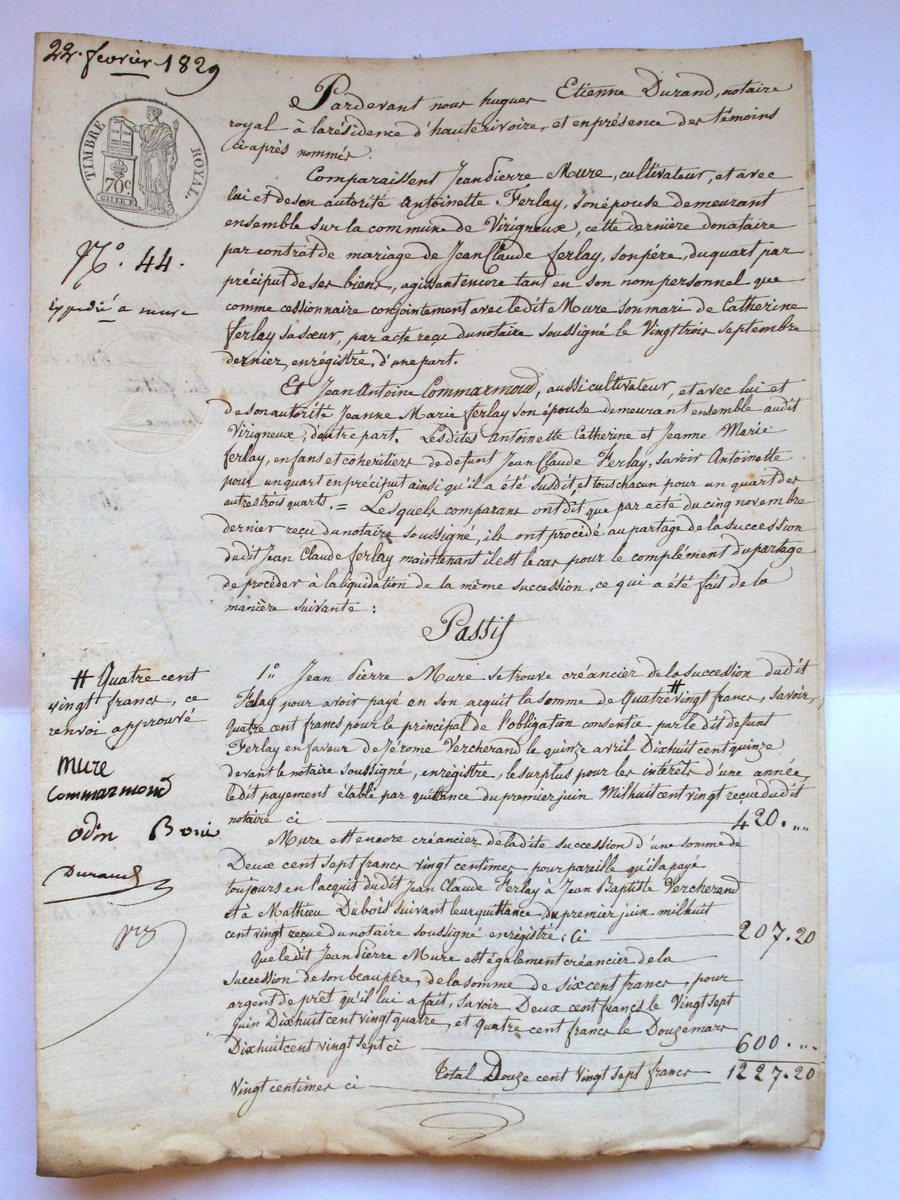 22. février 1829
TIMBRE ROYAL.
70c.
N.° 44.
Expédié a mure
Pardevant nous hugues Etienne Durand, notaire
royal à la résidence d'hauterivoire, et en présence des témoins
ci après nommés.
Comparaissent Jean Pierre Mure, cultivateur, et avec
lui et de son autorité Antoinette Ferlay, son épouse demeurant
ensemble sur la commune de Virigneux, cette dernière donataire
par contrat de mariage de Jean Claude ferlay, son père, du quart par
préciput de ses biens, agissant encore tant en son nom personnel que
comme cessionnaire conjointement avec ledit Mure son mari de Catherine
ferlay sa sœur, par acte reçu du notaire soussigné le Vingt trois Septembre
dernier, enrégistré, d'une part.
Et Jean Antoine Commarmond, aussi cultivateur, et avec lui et
de son autorité Jeanne Marie ferlay son épouse demeurant ensemble audit
Virigneux, d'autre part. Lesdites Antoinette Catherine et Jeanne Marie
ferlay, enfans et cohéritiers de defunt Jean Claude Ferlay, savoir Antoinette
pour un quart en préciput ainsi qu'il a été susdit, et tous chacun pour un quart des
autres trois quarts. = Lesquels comparans ont dit que par acte du cinq novembre
dernier reçu du notaire soussigné, ils ont procédé au partage de la succession
dudit Jean Claude ferlay maintenant il est le cas pour le complément du partage
de procéder à la liquidation de la même succession, ce qui a été fait de la
manière suivante :
Passif
1.° Jean Pierre Mure se trouve créancier de la succession dudit
Ferlay pour avoir payé en son acquit la somme de Quatre # vingt francs, savoir,
Quatre cent francs pour le principal de l'obligation consentie par le dit defunt
Ferlay en faveur de Jérome Vercherand le quinze avril Dix huit cent quinze
devant le notaire soussigné, enrégistré, le surplus pour les intérêts d'une année,
ledit payement établi par quittance du premier juin Mil huit cent vingt reçue dudit
notaire ci 420. „
# Quatre cent
vingt francs, ce
renvoi approuvé
Mure
Commarmond
odin
Durand
Mure est encore créancier de ladite succession d'une somme de
Deux cent sept francs vingt centimes pour pareille qu'il a payé
toujours en l'acquit dudit Jean Claude Ferlay à Jean Baptiste Vercherand
et à Mathieu Dubois suivant leur quittance du premier juin mil huit
cent vingt reçue du notaire soussigné enrégistré ; Ci 207.20
Que ledit Jean Pierre Mure est également créancier de la
Succession de son beau père, de la somme de six cent francs, pour
argent de prêt qu'il lui a fait, savoir Deux cent francs le Vingt sept
juin Dix huit cent vingt quatre, et quatre cent francs le Douze mars
Dix huit cent vingt sept ci 600. „
Total Douze cent Vingt sept francs 1227.20
Vingt centimes ci